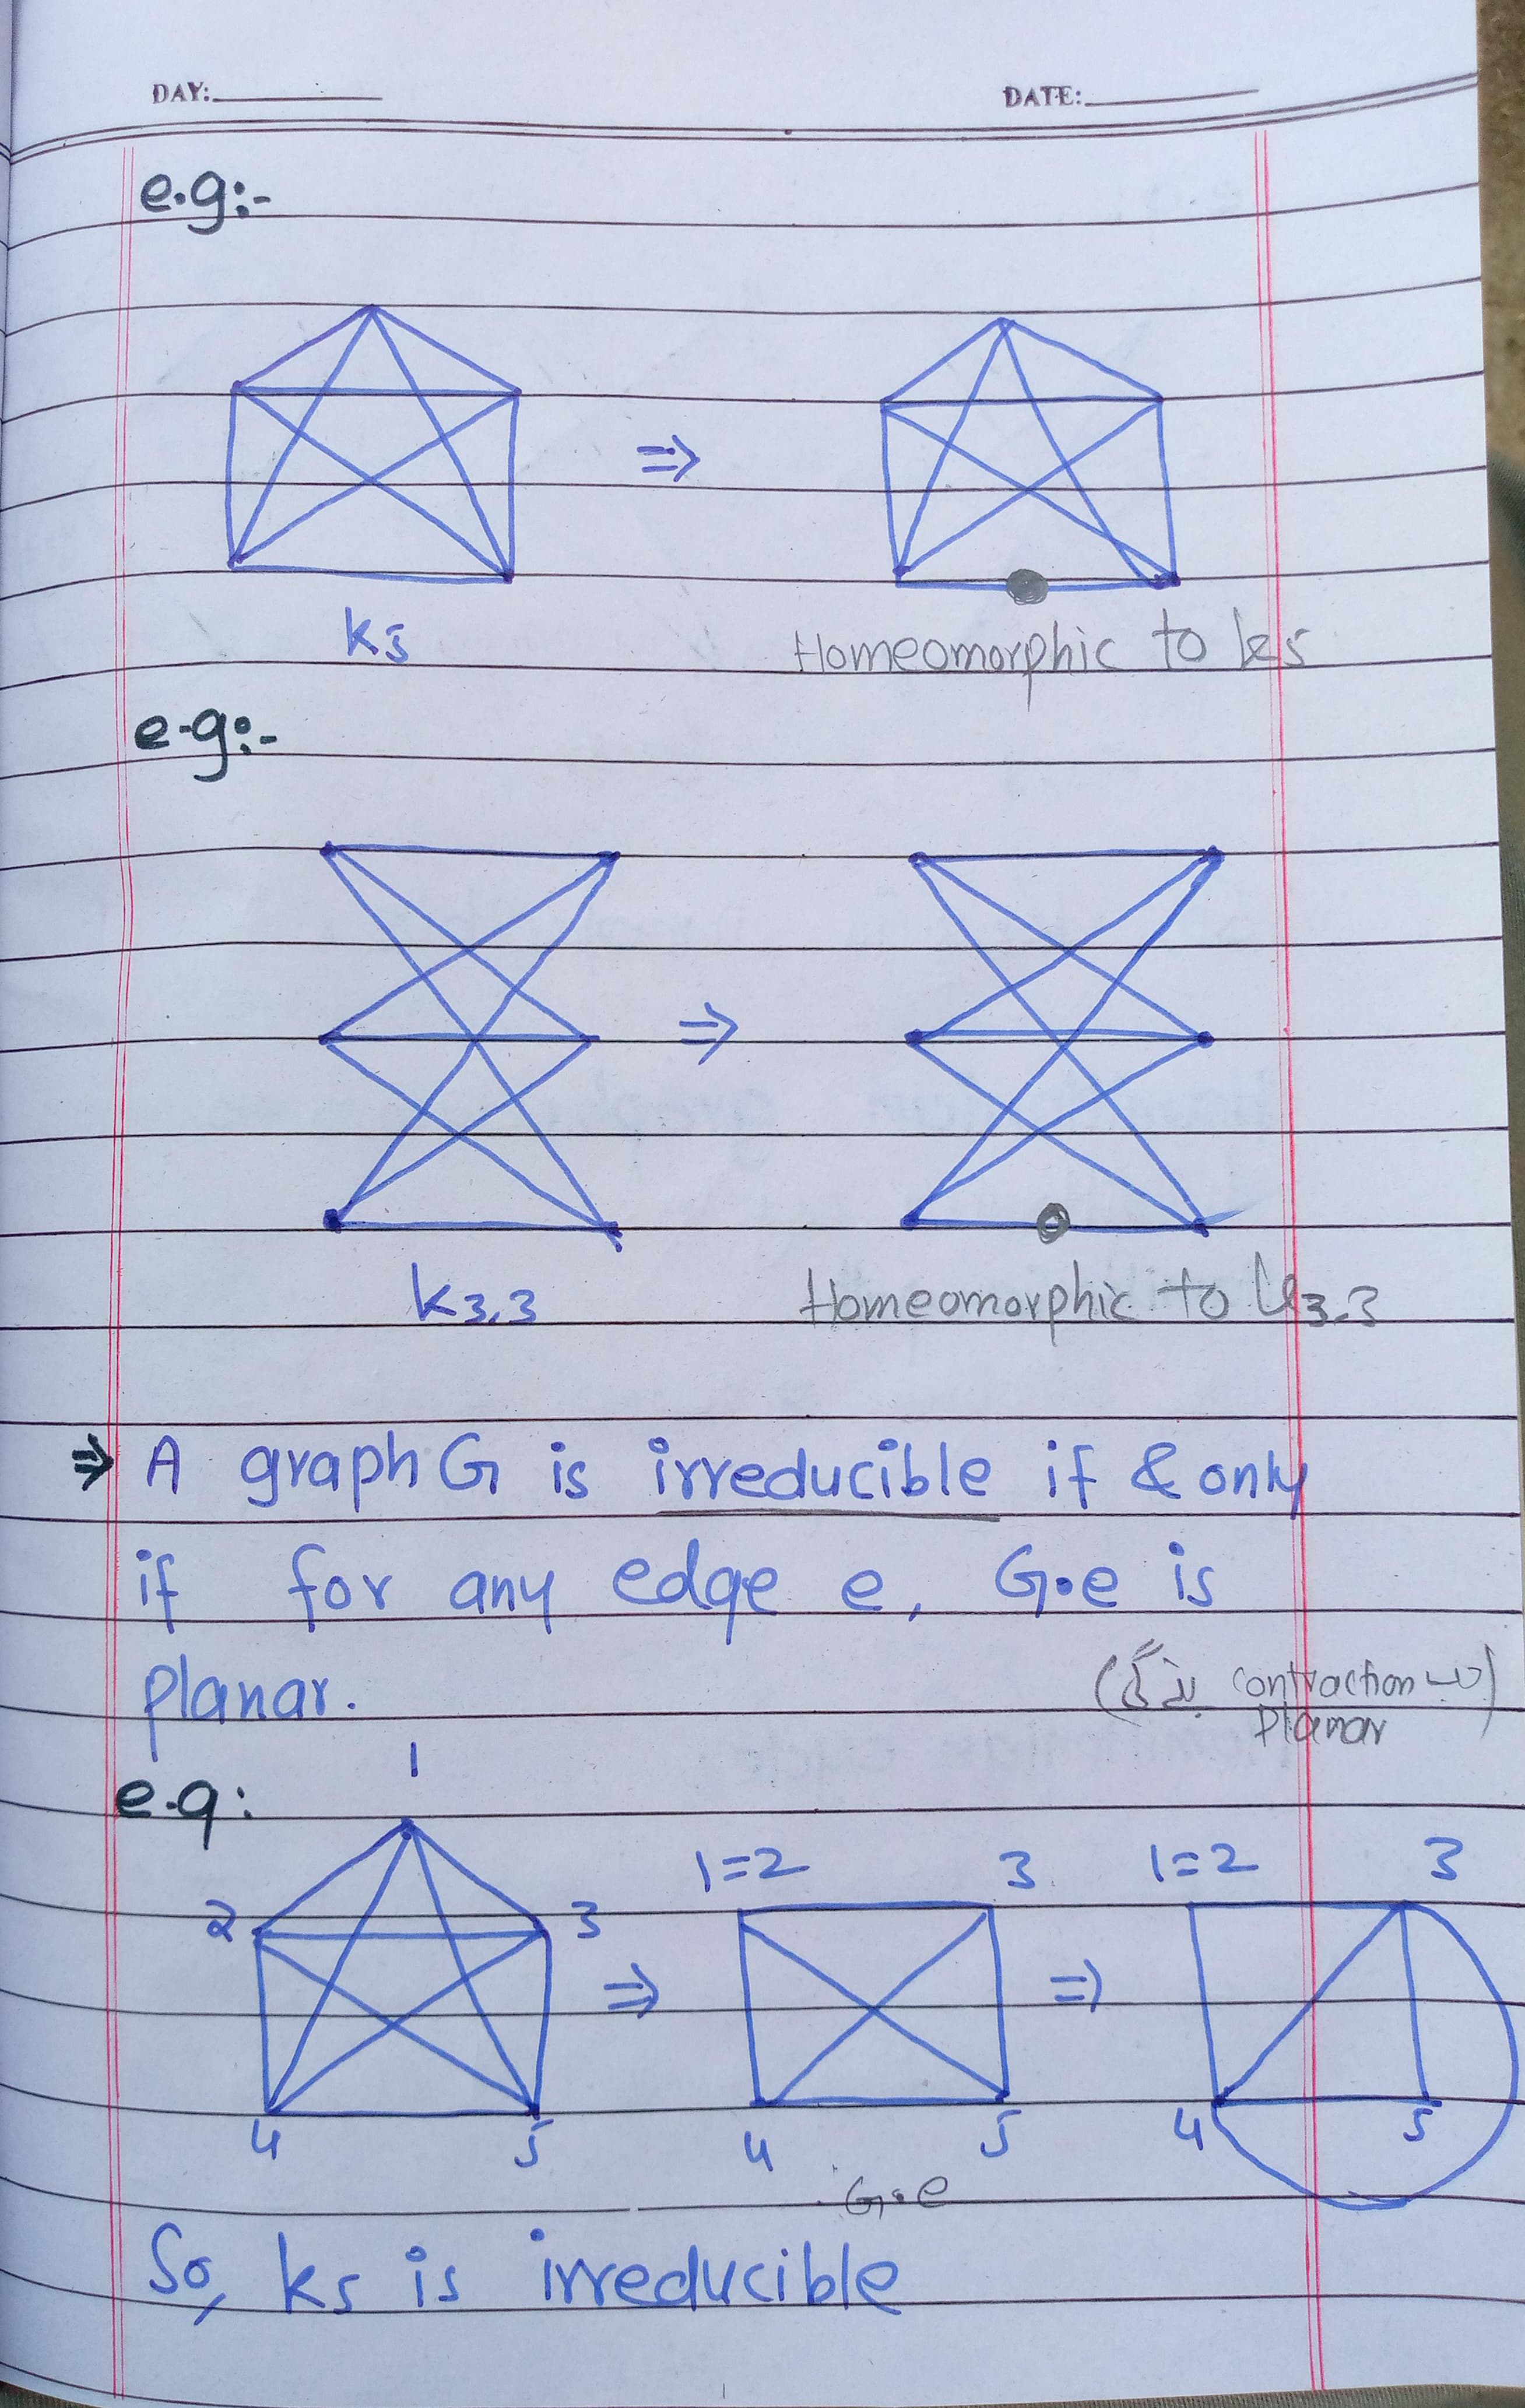 DAY: DATE:
e.g:-
⇒
k5 Homeomorphic to k5
e-g:-
⇒
k3,3 Homeomorphic to k3.3
⇒ A graph G is irreducible if & only
if for any edge e, G•e is
planar.
contraction
Planar
e.g:
1
2 3 ⇒ 1=2 3 ⇒ 1=2 3
4 5 4 5 4 5
G•e
So, k5 is irreducible